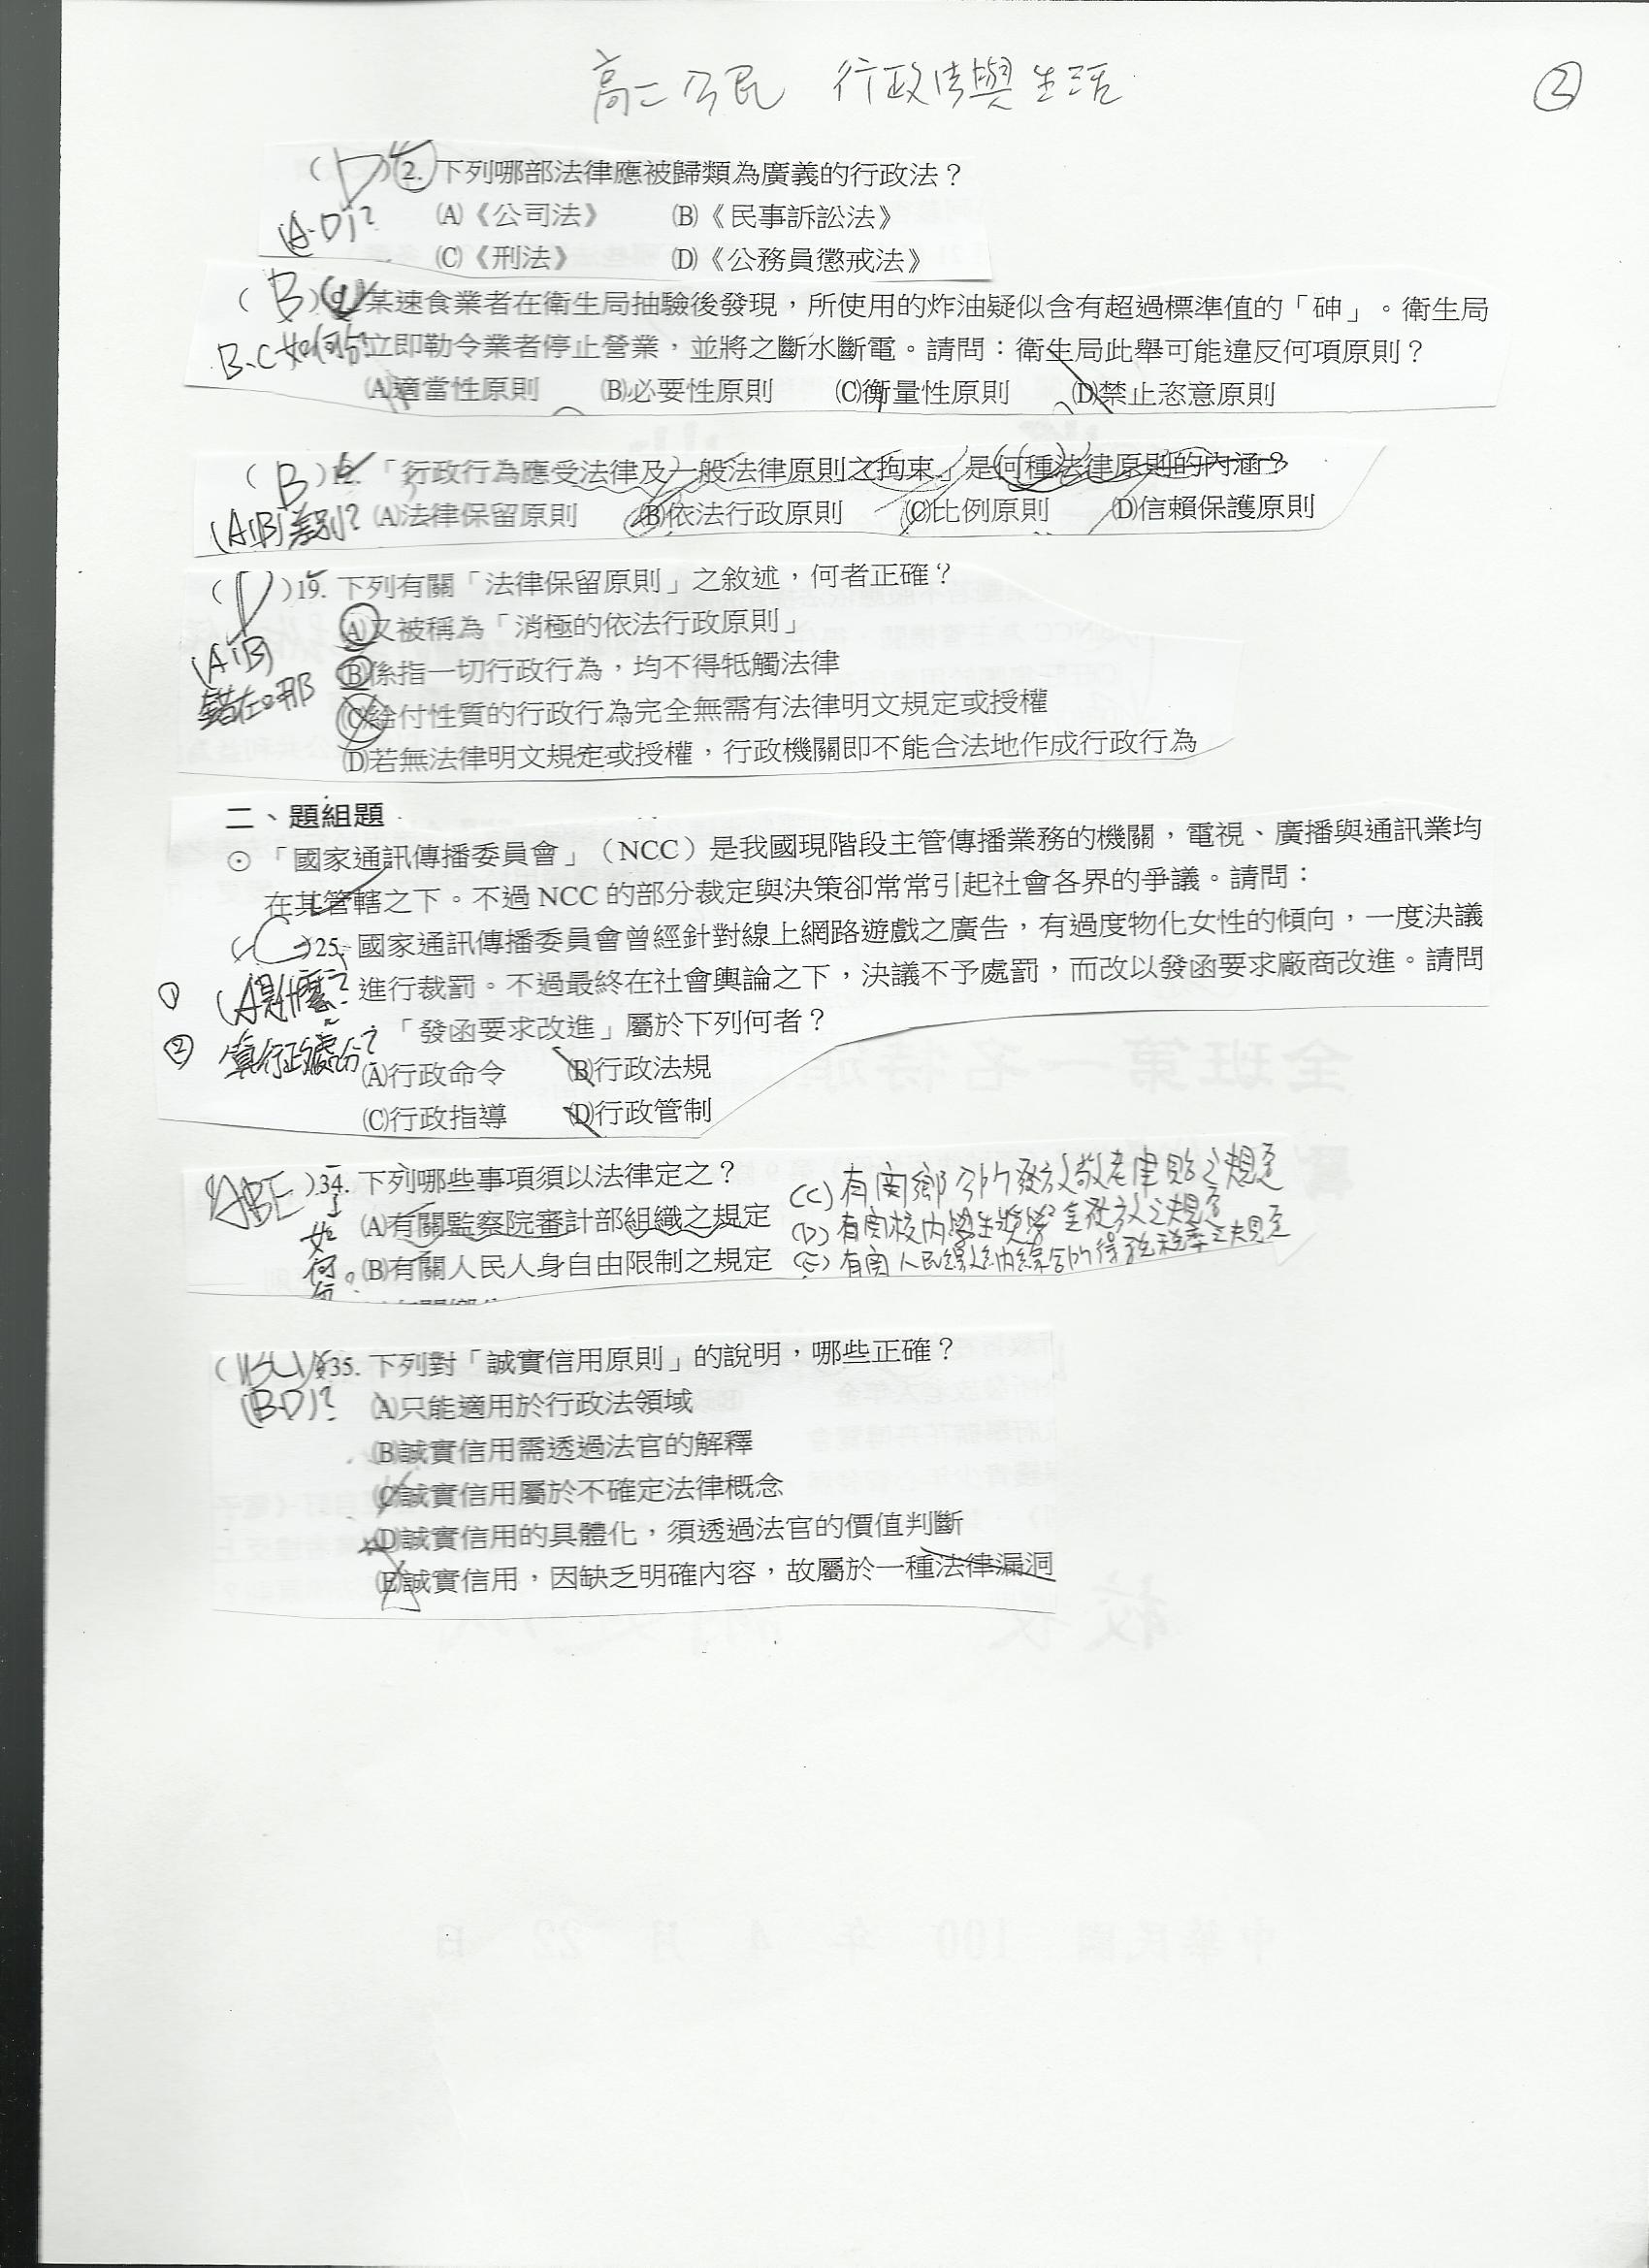 高二公民 行政法與生活 ②
(D)2. 下列哪部法律應被歸類為廣義的行政法？
(A.D)? (A)《公司法》 (B)《民事訴訟法》
(C)《刑法》 (D)《公務員懲戒法》
(B) 某速食業者在衛生局抽驗後發現，所使用的炸油疑似含有超過標準值的「砷」。衛生局
B、C如何分 立即勒令業者停止營業，並將之斷水斷電。請問：衛生局此舉可能違反何項原則？
(A)適當性原則 (B)必要性原則 (C)衡量性原則 (D)禁止恣意原則
(B)12. 「行政行為應受法律及一般法律原則之拘束」是何種法律原則的內涵？
(A)(B)差別? (A)法律保留原則 (B)依法行政原則 (C)比例原則 (D)信賴保護原則
(D)19. 下列有關「法律保留原則」之敘述，何者正確？
(A)又被稱為「消極的依法行政原則」
(A)(B) (B)係指一切行政行為，均不得牴觸法律
錯在哪 (C)給付性質的行政行為完全無需有法律明文規定或授權
(D)若無法律明文規定或授權，行政機關即不能合法地作成行政行為
二、題組題
⊙「國家通訊傳播委員會」（NCC）是我國現階段主管傳播業務的機關，電視、廣播與通訊業均
在其管轄之下。不過 NCC 的部分裁定與決策卻常常引起社會各界的爭議。請問：
(C)25. 國家通訊傳播委員會曾經針對線上網路遊戲之廣告，有過度物化女性的傾向，一度決議
① (A)是什麼? 進行裁罰。不過最終在社會輿論之下，決議不予處罰，而改以發函要求廠商改進。請問
② 算行政處份? 「發函要求改進」屬於下列何者？
(A)行政命令 (B)行政法規
(C)行政指導 (D)行政管制
(ABE)34. 下列哪些事項須以法律定之？
如何分。 (A)有關監察院審計部組織之規定
(B)有關人民人身自由限制之規定
(C)有關鄉公所發放敬老津貼之規定
(D)有關校內學生獎學金發放之規定
(E)有關人民繳納綜合所得稅稅率之規定
35. 下列對「誠實信用原則」的說明，哪些正確？
(B.D)? (A)只能適用於行政法領域
(B)誠實信用需透過法官的解釋
(C)誠實信用屬於不確定法律概念
(D)誠實信用的具體化，須透過法官的價值判斷
(E)誠實信用，因缺乏明確內容，故屬於一種法律漏洞